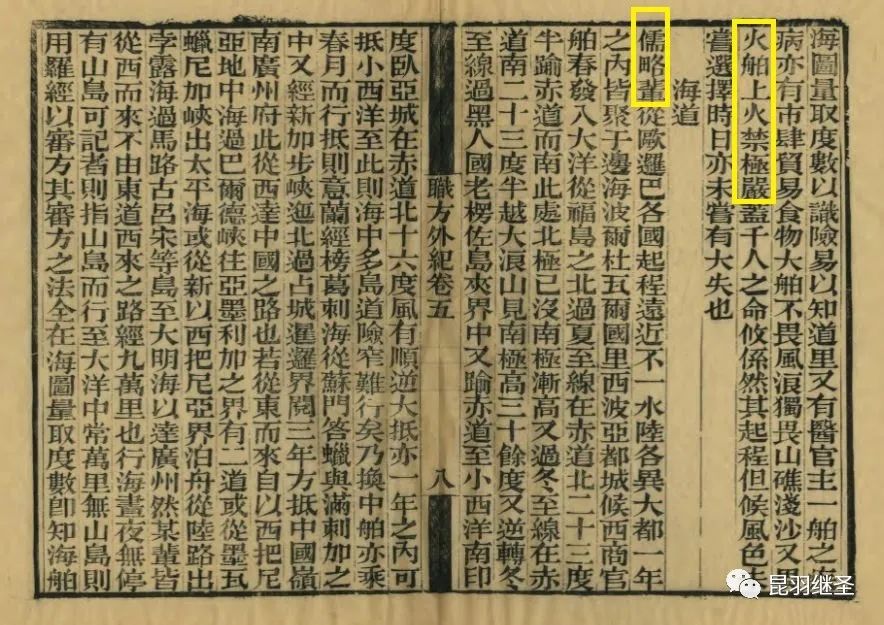 海圖量取度數以識險易以知道里又有醫官主一舶之疾
病亦有市肆貿易食物大舶不畏風浪獨畏山礁淺沙又畏
火舶上火禁極嚴蓋千人之命攸係然其起程但候風色
嘗選擇時日亦未嘗有大失也
海道
儒略輩從歐邏巴各國起程遠近不一水陸各異大都一年
之內皆聚于邊海波爾杜瓦爾國里西波亞都城候西商官
舶春發入大洋從福島之北過夏至線在赤道北二十三度
半踰赤道而南此處北極已沒南極漸高又過冬至線在赤
道南二十三度半越大浪山見南極高三十餘度又逆轉冬
至線過黑人國老楞佐島夾界中又踰赤道至小西洋南印
職方外紀卷五 八
度臥亞城在赤道北十六度風有順逆大抵亦一年之內可
抵小西洋至此則海中多島道險窄難行矣乃換中舶亦乘
春月而行抵則意蘭經榜葛剌海從蘇門答蠟與滿剌加之
中又經新加步峽迤北過占城暹邏界閱三年方抵中國嶺
南廣州府此從西達中國之路也若從東而來自以西把尼
亞地中海過巴爾德峽往亞墨利加之界有二道或從墨瓦
蠟尼加峽出太平海或從新以西把尼亞界泊舟從陸路出
孛露海過馬路古呂宋等島至大明海以達廣州然某輩皆
從西而來不由東道西來之路經九萬里也行海晝夜無停
有山島可記者則指山島而行至大洋中常萬里無山島則
用羅經以審方其審方之法全在海圖量取度數即知海舶
昆羽继圣